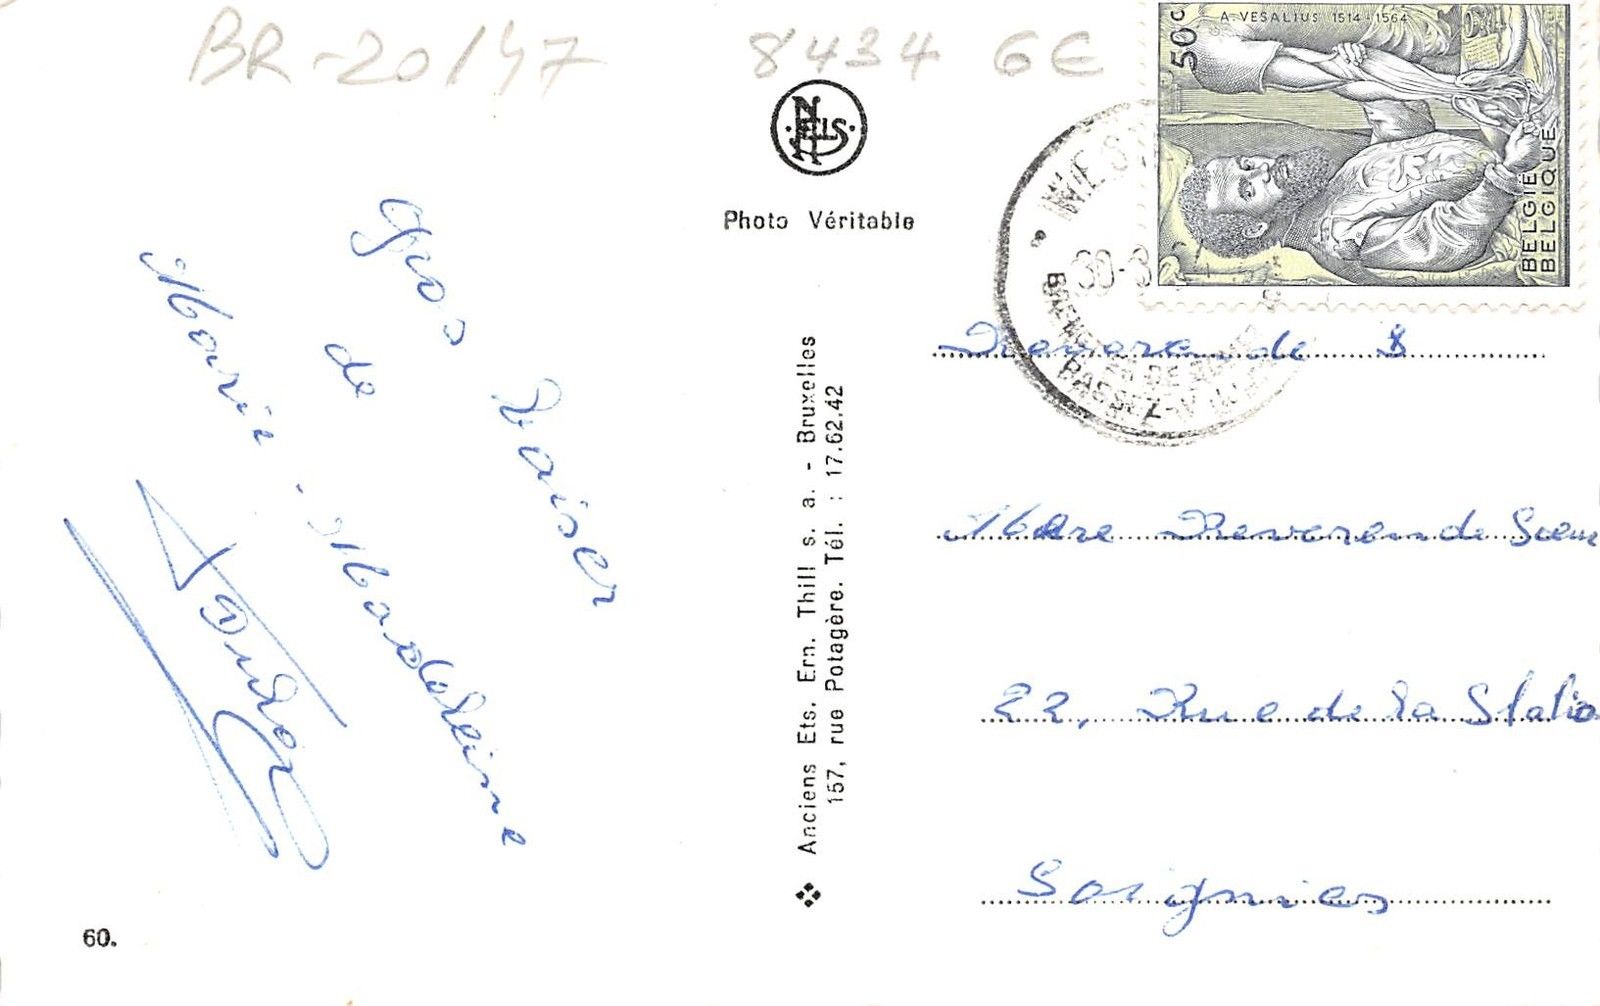 BR-20/47
8434 6€
50c
A. VESALIUS 1514-1564
BELGIË
BELGIQUE
NELS
Photo Véritable
30-8
PASSEZ
Gros baiser
de
Marie-Madeleine
Anciens Ets. Ern. Thill s. a. - Bruxelles
157, rue Potagère. Tél. : 17.62.42
Reverende S
Mère Reverende Soeur
22, Rue de la Statio
Soignies
60.